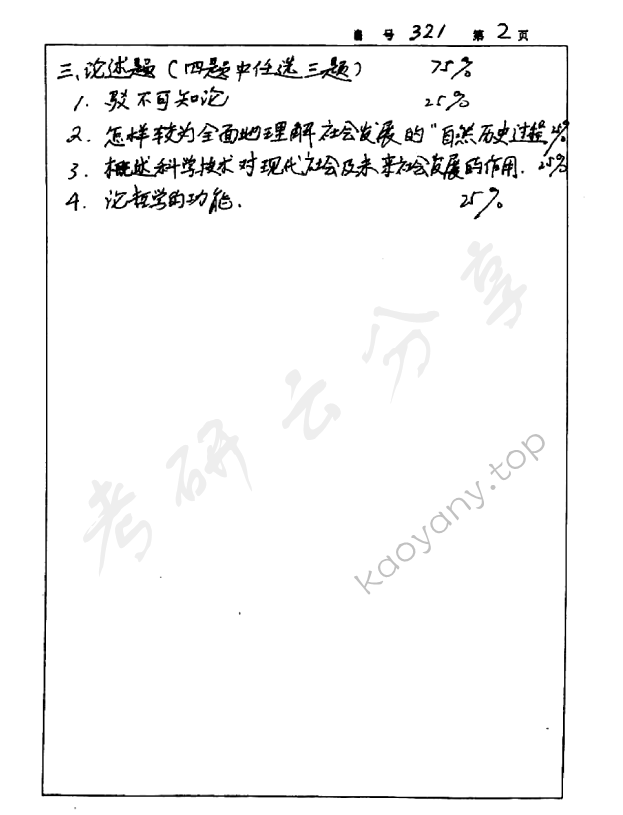 编 号 321 第 2 页
三、论述题(四题中任选三题) 75%
1. 驳不可知论 25%
2. 怎样较为全面地理解社会发展的“自然历史过程 25%
3. 概述科学技术对现代社会及未来社会发展的作用. 25%
4. 论哲学的功能. 25%
考研云分享
kaoyany.top